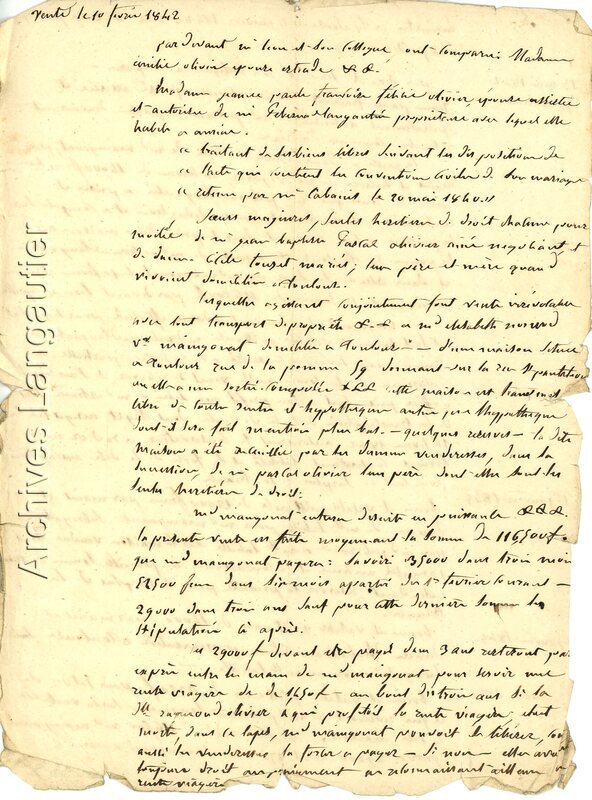 Vente le 10 février 1842
par devant me leon et son collegue ont comparu Madame
émilie olivier épouse estrade &&.
Madame jeanne paule françoise félicie olivier, épouse assistée
et autorisée de mr langautier propriétaire avec lequel elle
habite a
« traitant de ses biens libres suivant les dispositions de
« l'acte qui contient les conventions civiles de son mariage
« retenu par me Cabanis le 20 mai 1840.»
Sœurs majeures, seules heritieres de droit chacune pour
moitié de mr jean baptiste Pascal olivier ainé negotiant et
de dame touzet mariés; leur père et mère quand
vivoient domiciliés a Toulouse.
lesquelles agissant conjointement font vente irrévocable
avec tout transport de propriété &.&. a md elisabeth
ve maingonat domiciliée a Toulouse — d'une maison située
a Toulouse rue de la pomme 59 donnant sur la rue st pantaléon
ou elle a une sortie. laquelle &&& cette maison est
libre de toute rente et hypotheque autre que l'hypotheque
dont il sera fait mention plus bas. — quelques reserves — la dite
Maison a été recueillie par les dames venderesses, dans la
succession de mr pascal olivier leur père dont elles sont les
seules heritieres de droit.
md maingonat entrera de suite en jouissance &&&.
la presente vente est faite moyennant la somme de 116500f.
que md maingonat payera: savoir 35000 dans trois mois
52500 francs dans six mois a partir du 1er fevrier courant —
29000 dans trois ans sauf pour cette derniere somme les
stipulations ci après.
les 29000f devant etre payés dans 3 ans resteront
exprès entre les mains de md maingonat pour servir une
rente viagère de 1450f — au bout de trois ans si la
olivier à qui profitois la rente viagère, etait
morte dans ce laps, md maingonat pouvoit se libérer,
aussi les venderesses la forcer a payer — si non — elles
toujours droit au payement en reconnaissant ailleurs
rente viagère
Archives Langautier